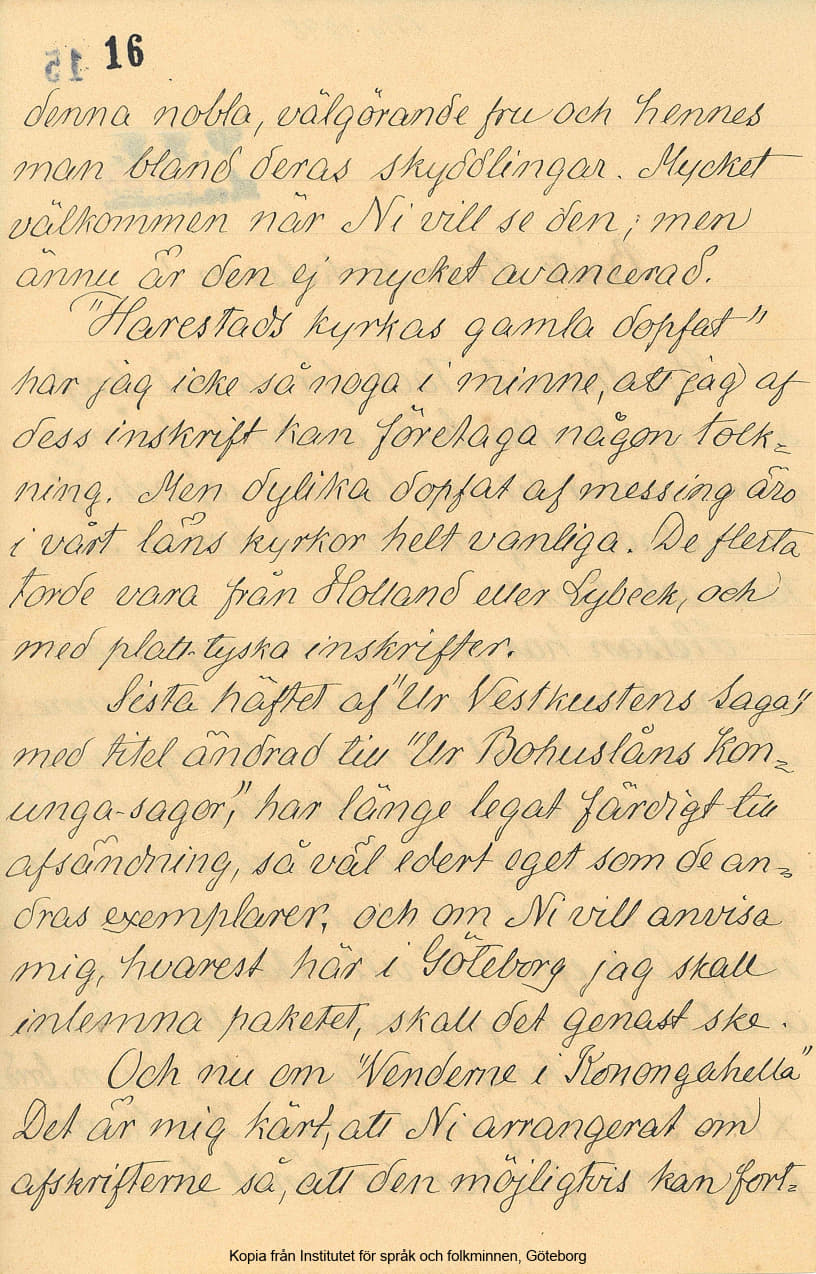 15 16
denna nobla, välgörande fru och hennes
man bland deras skyddlingar. Mycket
välkommen när Ni vill se den; men
ännu är den ej mycket avancerad.
"Harestads kyrkas gamla dopfat"
har jag icke så noga i minne, att jag af
dess inskrift kan företaga någon tolk=
ning. Men dylika dopfat af messing äro
i vårt läns kyrkor helt vanliga. De flesta
torde vara från Holland eller Lybeck, och
med platt-tyska inskrifter.
Sista häftet af "Ur Vestkustens Saga",
med titel ändrad till "Ur Bohusläns Kon=
unga-sagor", har länge legat färdigt till
afsändning, så väl edert eget som de an=
dras exemplarer, och om Ni vill anvisa
mig, hvarest här i Göteborg jag skall
inlemna paketet, skall det genast ske.
Och nu om "Venderne i Konongahella"
Det är mig kärt, att Ni arrangerat om
afskrifterne så, att den möjligtvis kan fort=
Kopia från Institutet för språk och folkminnen, Göteborg